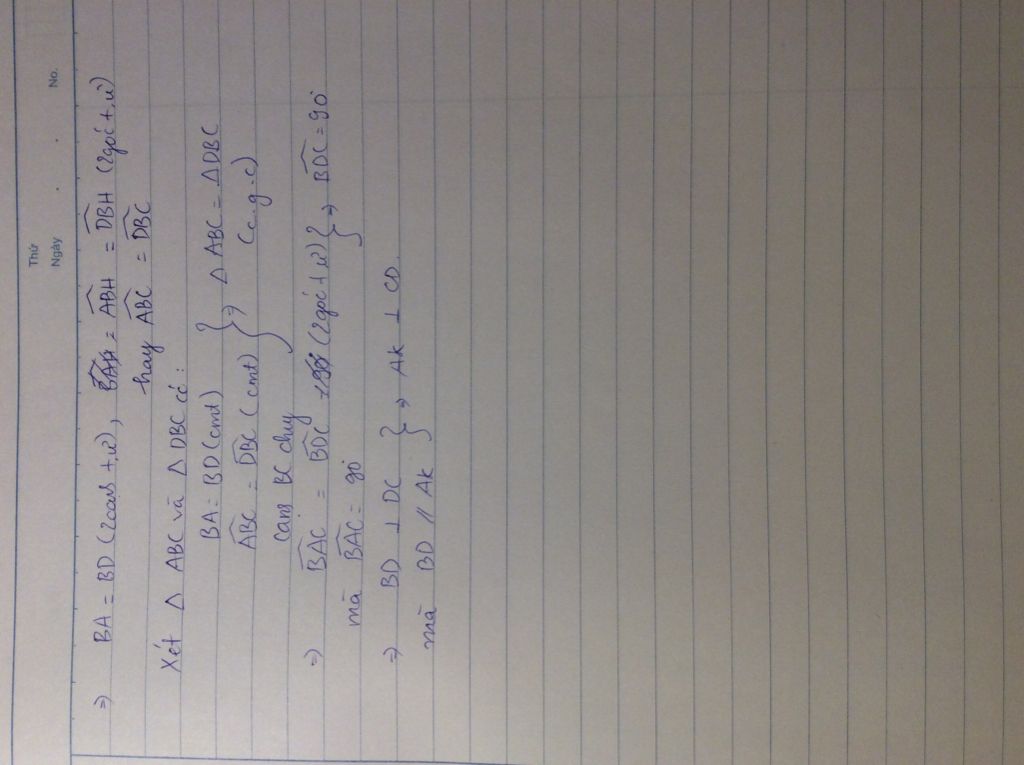 Thứ
Ngày
No.
⇒ BA = BD (2 cạnh t.ư), = ABH = DBH (2 góc t.ư)
hay ABC = DBC
Xét Δ ABC và Δ DBC có:
BA = BD (cmt)
ABC = DBC (cmt) } ⇒ Δ ABC = Δ DBC
Cạnh BC chung (c.g.c)
⇒ BAC = BDC (2 góc t.ư)
mà BAC = 90° } ⇒ BDC = 90°
⇒ BD ⊥ DC
mà BD // AK } ⇒ AK ⊥ CD.